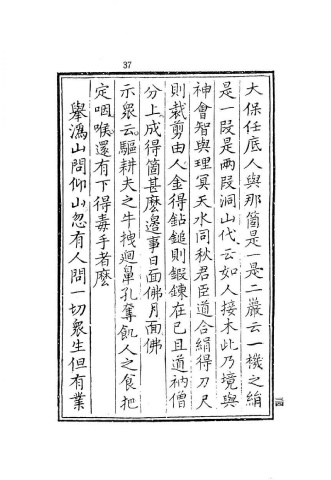 37
大保任底人與那箇是一是二巖云一機之絹
是一段是兩段洞山代云如人接木此乃境與
神會智與理冥天水同秋君臣道合絹得刀尺
則裁剪由人金得鉆鎚則鍛鍊在已且道衲僧
分上成得箇甚麼邊事日面佛月面佛
示衆云驅耕夫之牛拽迴鼻孔奪飢人之食把
定咽喉還有下得毒手者麼
舉溈山問仰山忽有人問一切衆生但有業